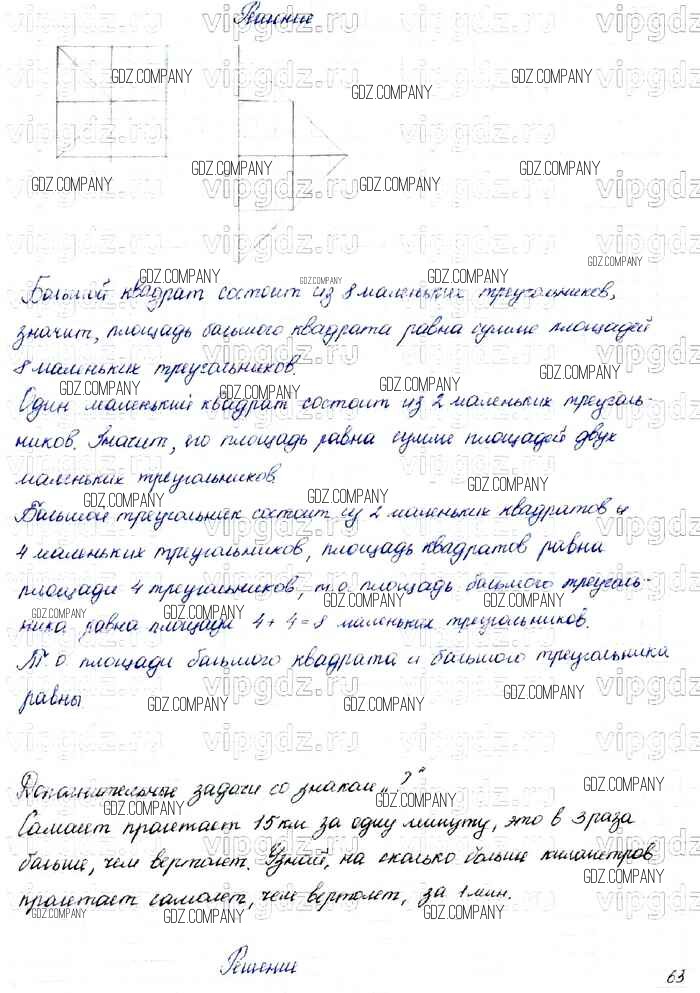 Решение
Большой квадрат состоит из 8 маленьких треугольников,
значит, площадь большого квадрата равна сумме площадей
8 маленьких треугольников.
Один маленький квадрат состоит из 2 маленьких треуголь-
ников. Значит, его площадь равна сумме площадей двух
маленьких треугольников.
Большой треугольник состоит из 2 маленьких квадратов и
4 маленьких треугольников, площадь квадратов равна
площади 4 треугольников, т.о. площадь большого треуголь-
ника равна площади 4 + 4 = 8 маленьких треугольников.
Т.о площади большого квадрата и большого треугольника
равны
Дополнительные задачи со знаком „?“
Самолет пролетает 15 км за одну минуту, это в 3 раза
больше, чем вертолет. Узнай, на сколько больше километров
пролетает самолет, чем вертолет, за 1 мин.
Решение
63